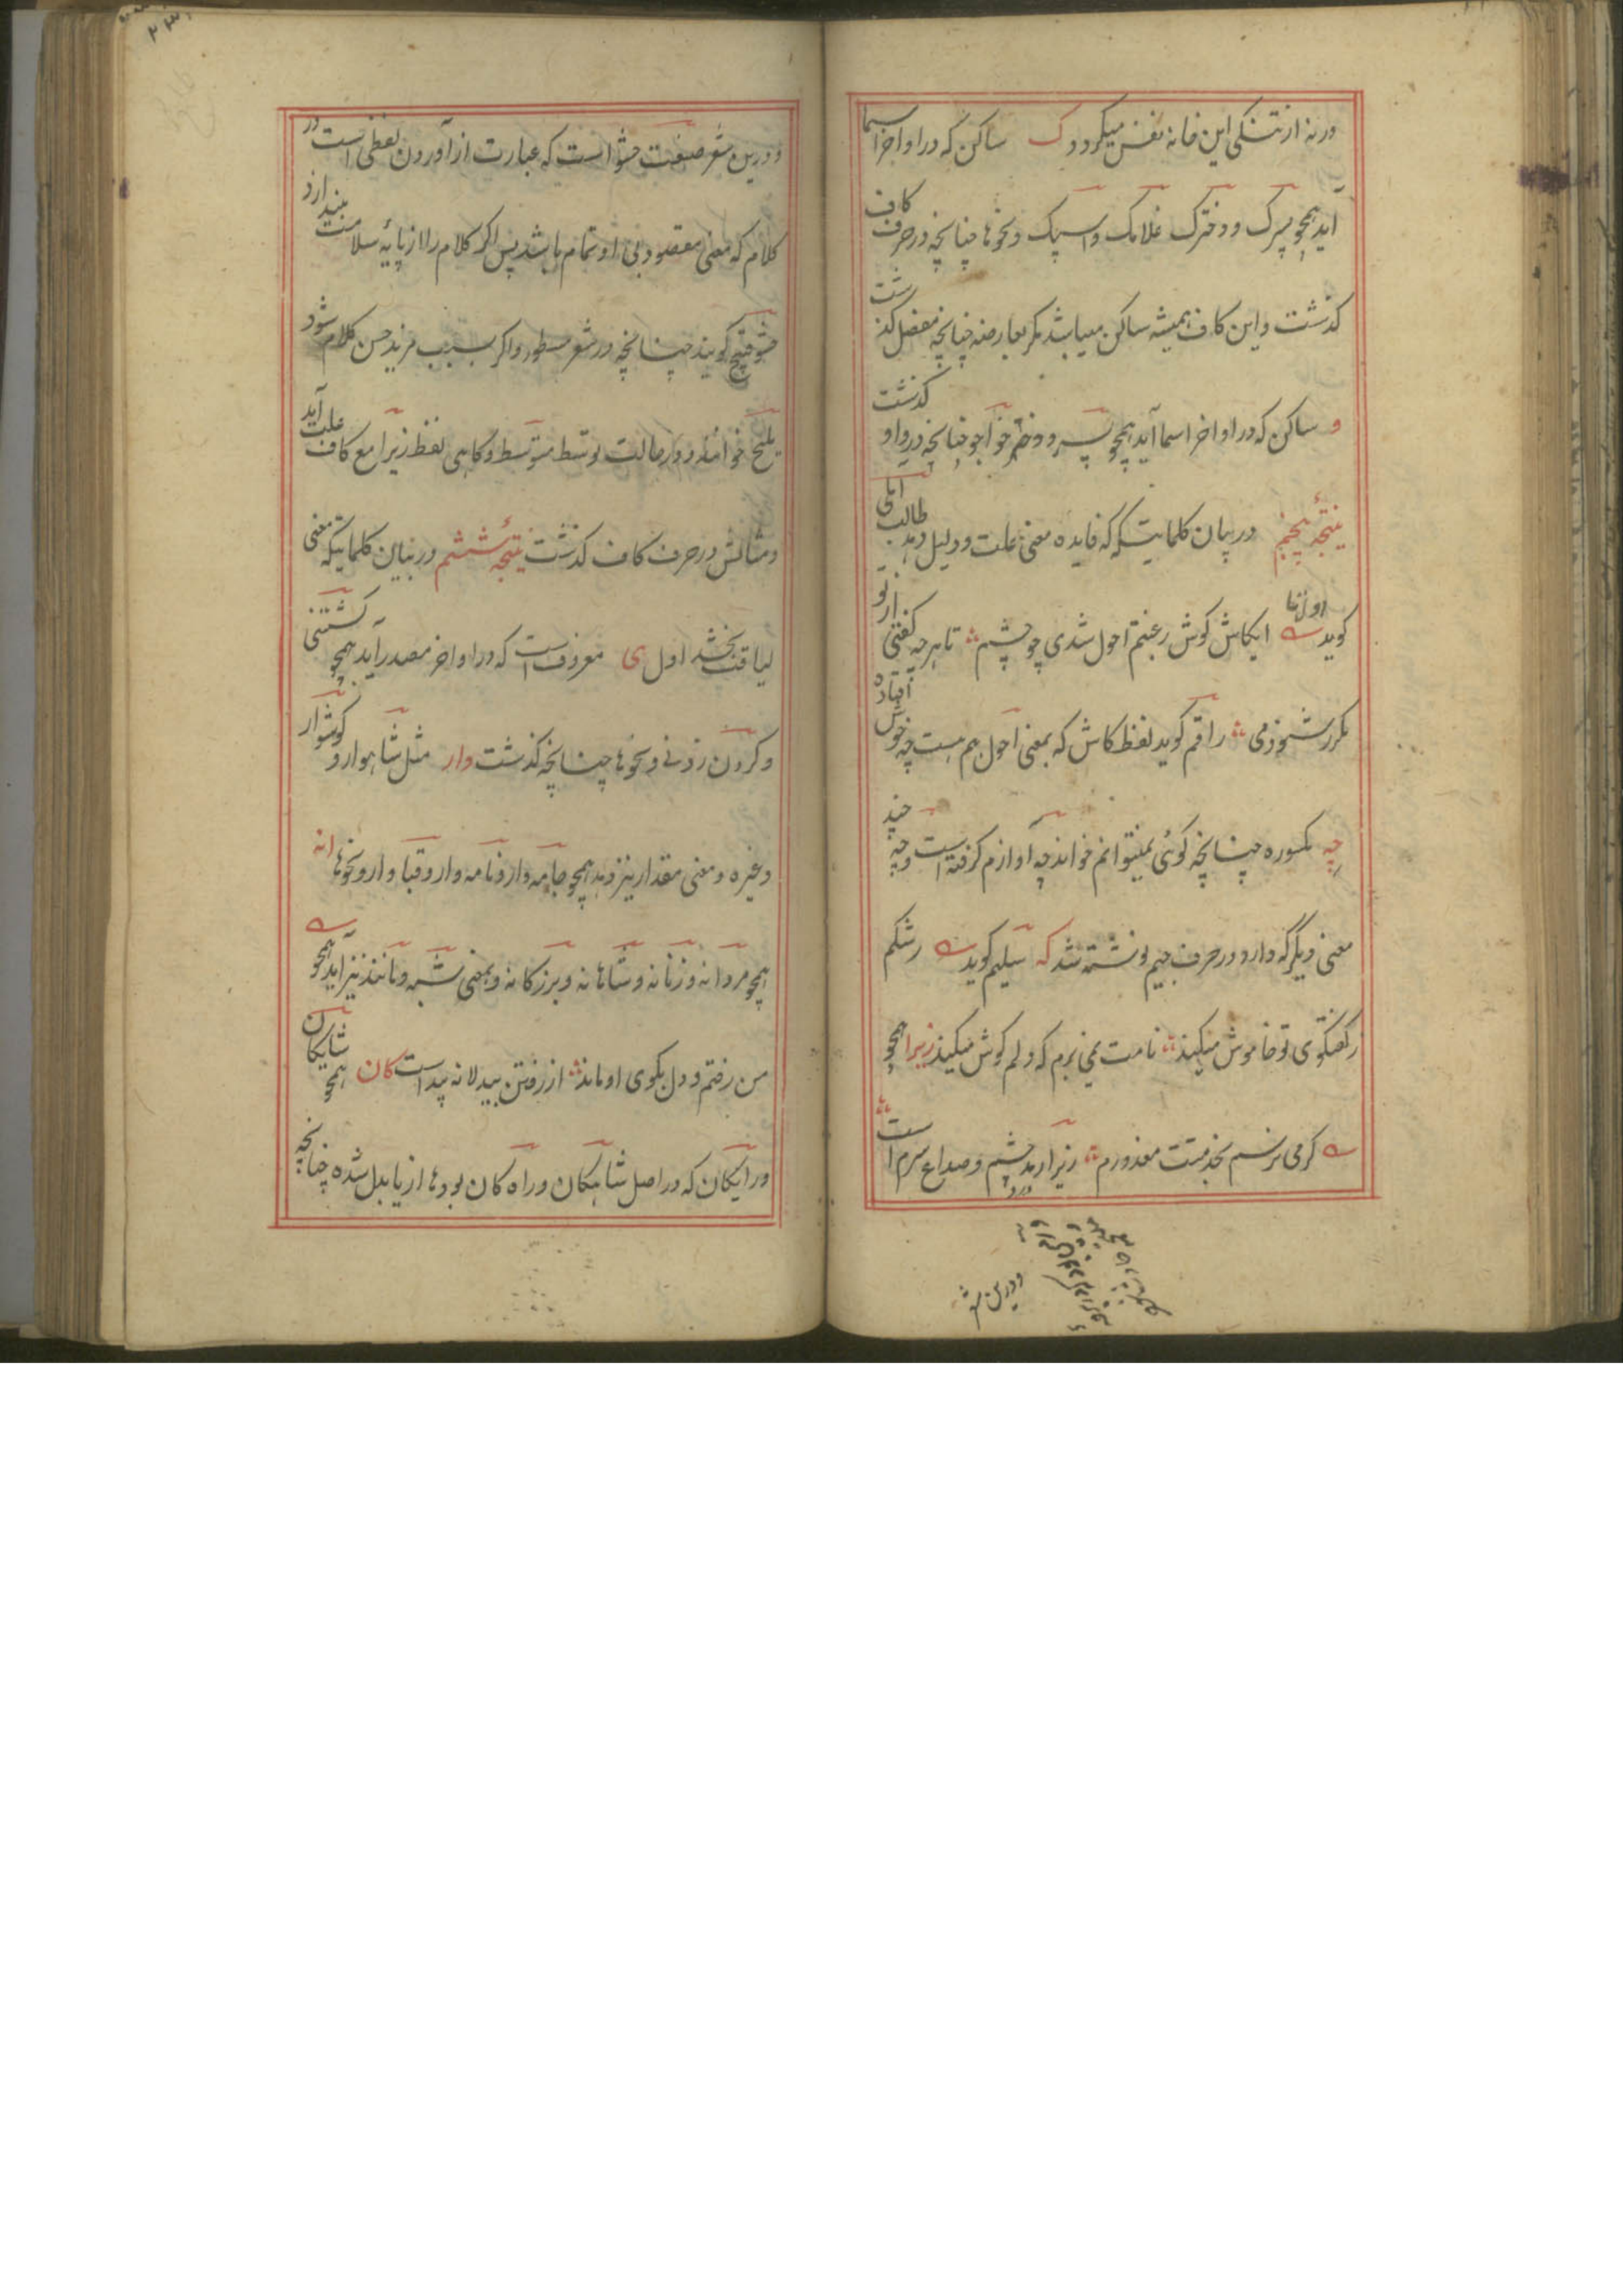 ورنه از تنگی این خانه نفس میگردد ک ساکن که در اواخر اسما
آید همچو پسرک و دخترک غلامک و اسپک و نحوها چنانچه در حرف کاف
گذشت و این کاف همیشه ساکن میباشد مگر بعارضه چنانچه مفصل گذشت
و ساکن که در اواخر اسما آید همچو پسرو و دخترو خواجو چنانچه در واو گذشت
نتیجهٔ پنجم در بیان کلماتیکه که فایده معنی علت و دلیل دهد طالب آملی
گوید ایکاش گوش رغبتم احول شدی چو چشم تا هرچه گفتی از تو
مکرر شنودمی راقم گوید لفظ کاش که بمعنی احول هم هست چه خوش افتاده
چه مکسوره چنانچه گوئی نمیتوانم خواند چه آوازم گرفته است و چه چند
معنی دیگر که دارد در حرف جیم نوشته شد که سلیم گوید رشکم
ز گفتگوی تو خاموش میکند نامت نمی برم که دلم گوش میکند زیرا همچو
گر می نرسم بخدمتت معذورم زیرا رمد چشم و صداع سرم است
درد
ودرین شعر
ودرین شعر صنعت حشو است که عبارت از آوردن لفظی است در
کلام که معنی مقصود بی او تمام باشد پس اگر کلام را از پایهٔ سلامت بیندازد
حشو قبیح گویند چنانچه در شعر مسطور و اگر سبب مزید حسن کلام شود
ملیح خوانند و در حالت توسط متوسط و گاهی لفظ زیرا مع کاف علت آید
و مثالش در حرف کاف گذشت نتیجهٔ ششم در بیان کلماتیکه معنی
لیاقت بخشد اول ی معروف است که در اواخر مصدر آید همچو کشتنی
و گردن زدنی و نحوها چنانچه گذشت وار مثل شاهوار و گوشوار
و غیره و معنی مقدار نیز دهد همچو جامه وار و نامه وار و قبا وار و نحوها انه
همچو مردانه و زنانه و شاهانه و بزرگانه و بمعنی شبه و مانند نیز آید همچو
من رفتم و دل بکوی او ماند از رفتن بیدلانه پیداست گان همچو شایگان
و رایگان که در اصل شاهگان و راه گان بود ها از یا بدل شده چنانچه